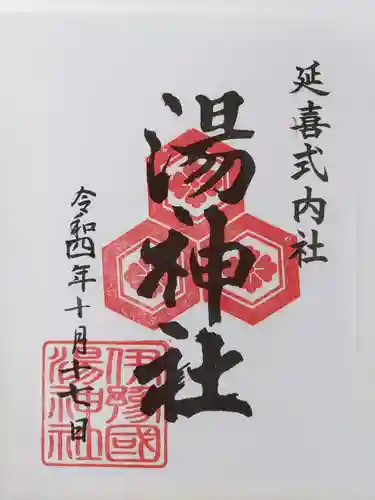 延喜式内社
湯神社
令和四年十月十七日
伊豫國
湯神社